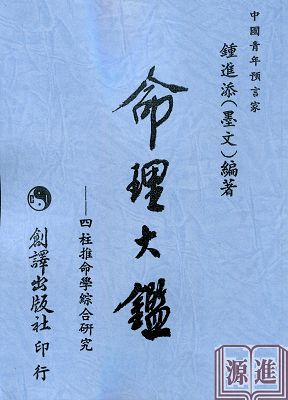 中國青年預言家
鍾進添(墨文)編著
命理大鑑
——四柱推命學綜合研究
創譯出版社印行
進源